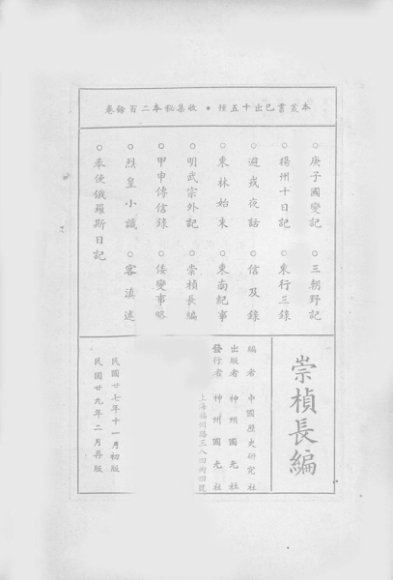 本叢書已出十五種・收集秘本二百餘卷
○庚子國變記 ○三朝野記
○揚州十日記 ○東行三錄
○避戎夜話 ○信及錄
○東林始末 ○東南紀事
○明武宗外記 ○崇禎長編
○甲申傳信錄 ○倭變事略
○烈皇小識 ○客滇述
○奉使俄羅斯日記
崇楨長編
編者 中國歷史研究社
出版者 神州國光社
發行者 神州國光社
上海福州路三八四衖四號
民國廿七年十一月初版
民國廿九年二月再版